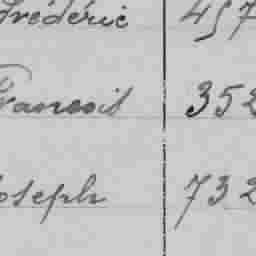 Frédéric 457
Francois 352
Joseph 732